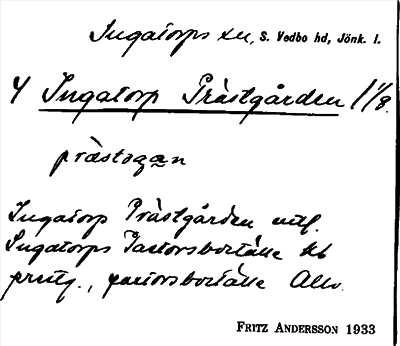 Ingatorps sn, S. Vedbo hd, Jönk. l.
4 Ingatorp Prästgården 1 1/8.
prästəgan
Ingatorp Prästgården enl.
Ingatorps Pastorsboställe Jb
prstg., pastorsboställe Allm.
FRITZ ANDERSSON 1933